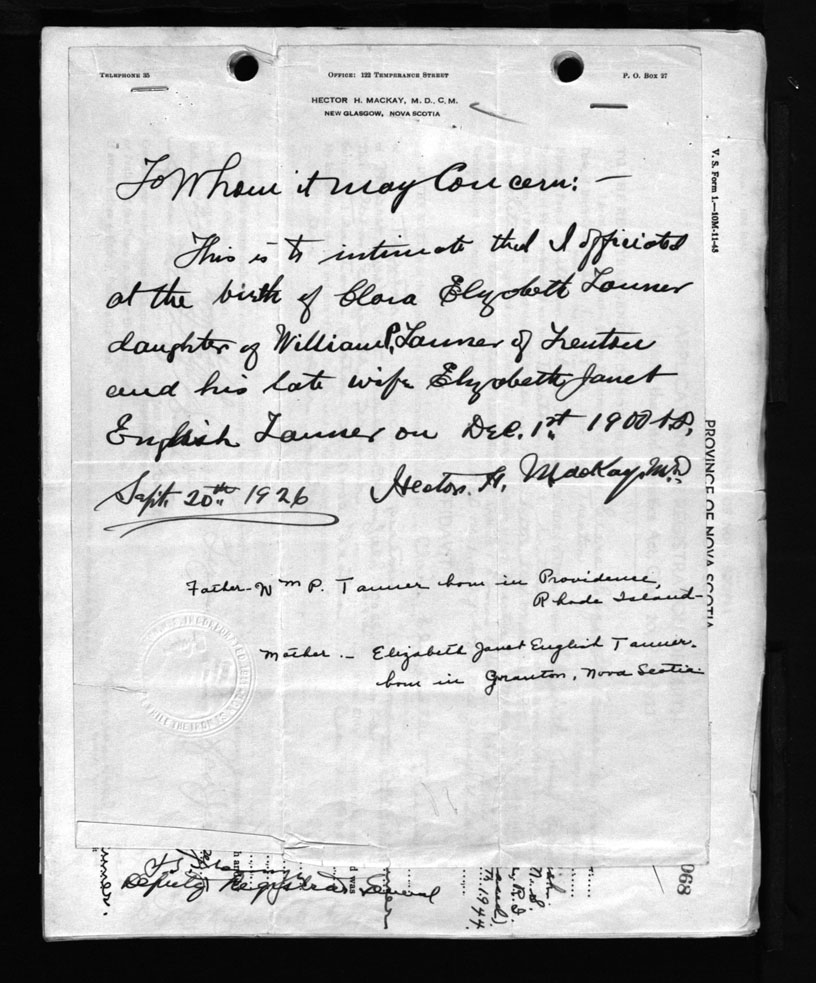 TELEPHONE 35
OFFICE: 122 TEMPERANCE STREET
P. O. BOX 27
HECTOR H. MACKAY, M. D., C. M.
NEW GLASGOW, NOVA SCOTIA
To Whom it may Concern: —
This is to intimate that I officiated
at the birth of Clara Elizabeth Tanner
daughter of William P. Tanner of Trenton
and his late wife Elizabeth Janet
English Tanner on Dec. 1st. 1900 A.D.
Sept. 20th. 1926 Hector. H. MacKay, M.D.
Father - Wm P. Tanner born in Providence,
Rhode Island -
Mother. - Elizabeth Janet English Tanner.
born in Granton, Nova Scotia.
V. S. Form 1.—10M-11-43
PROVINCE OF NOVA SCOTIA
Deputy Registrar General
d was
N.S
R.I.
1944.
068